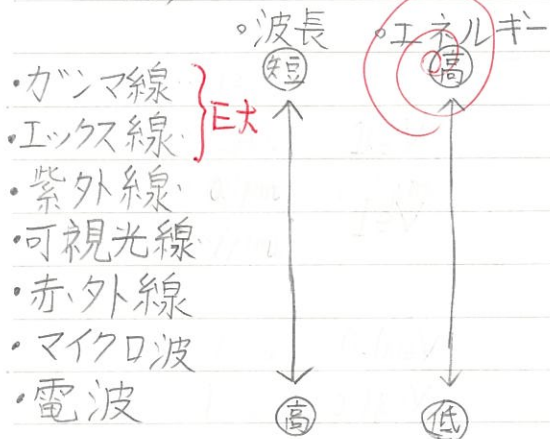 ・波長 ・エネルギー
短 高
・ガンマ線
・エックス線 } E大
・紫外線
・可視光線
・赤外線
・マイクロ波
・電波
高 低